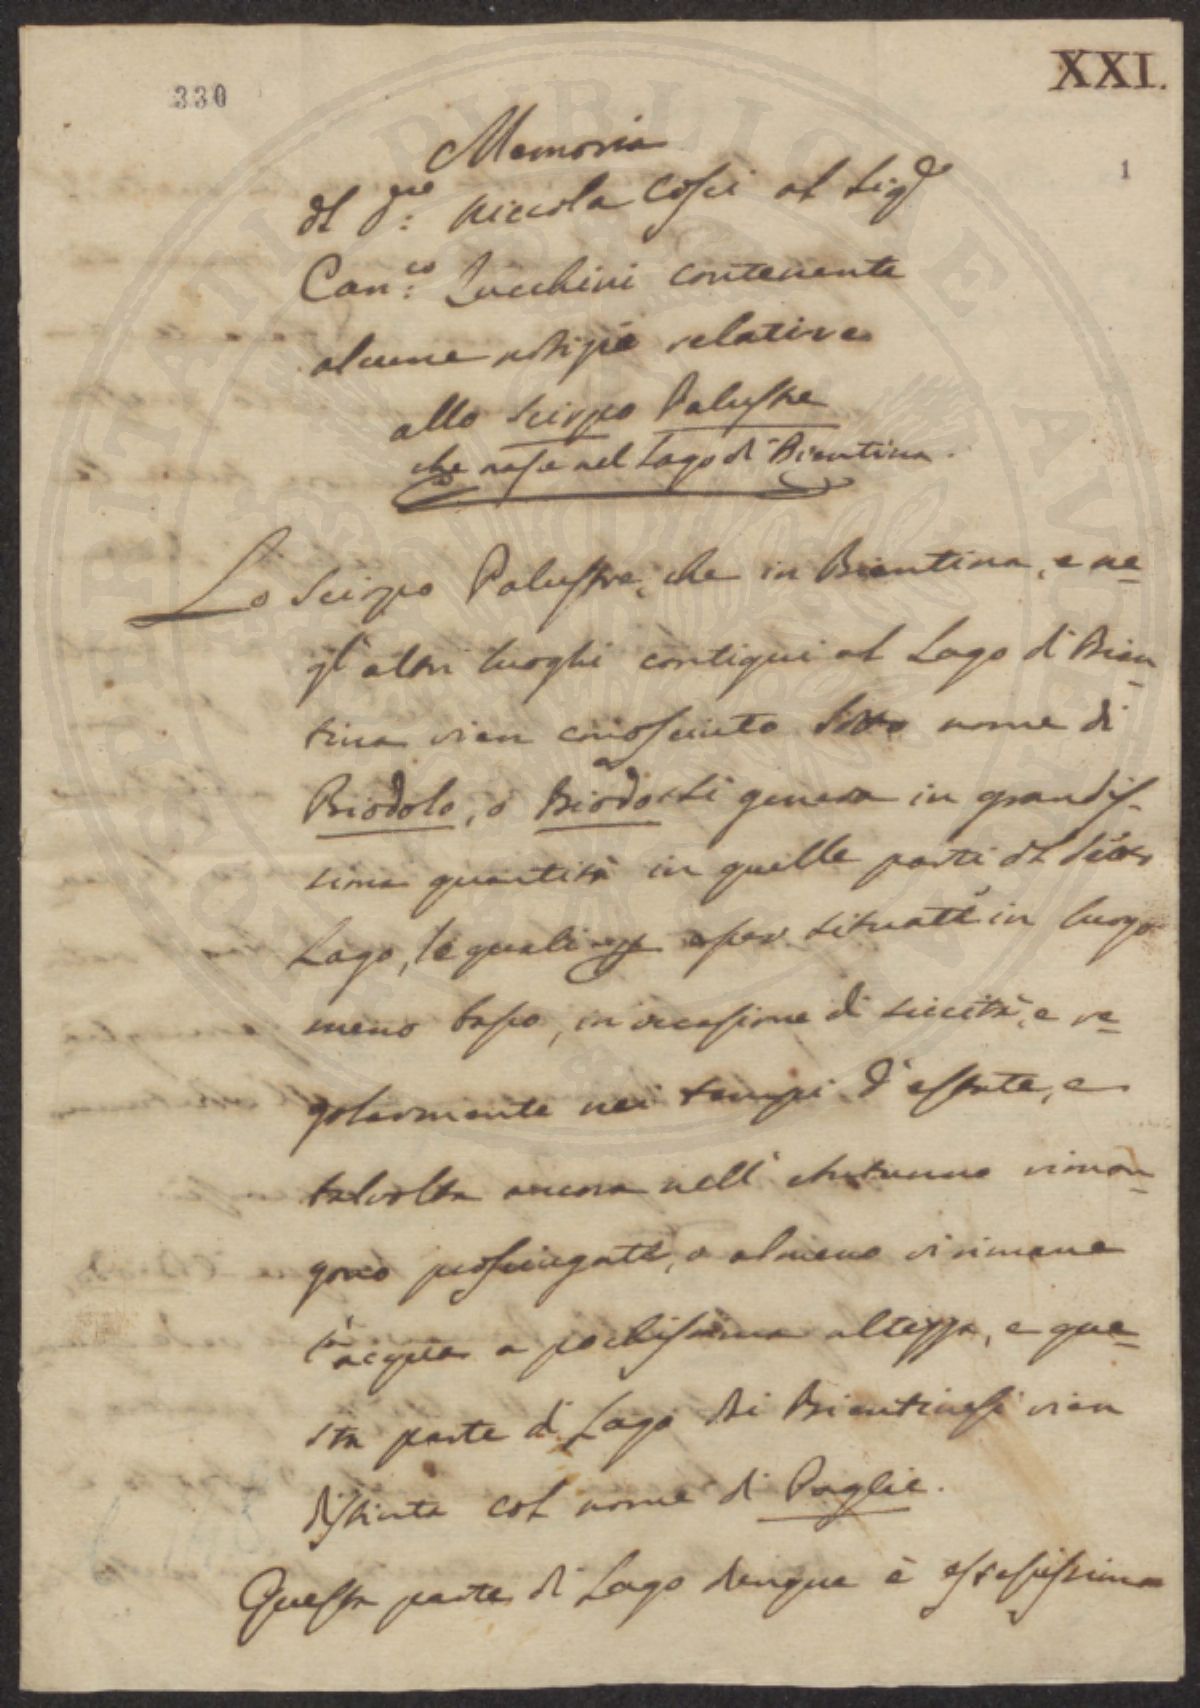 330
XXI.
1
Memoria
del Niccola Cosci al Sig.re
Can.co Zucchini contenente
alcune notizie relative
allo Scirpo Palustre
che nasce nel Lago di Bientina.
Lo Scirpo Palustre, che in Bientina, e ne-
gl'altri luoghi contigui al Lago di Bien-
tina vien conosciuto sotto nome di
Biodolo, o Biodo si genera in grandis-
sima quantità in quelle parti del detto
Lago, le quali per esser situate in luogo
meno basso, in occasione di siccità, e re-
golarmente nei tempi d'estate, e
talvolta ancora nell'Autunno riman-
gono prosciugate, o almeno vi rimane
l'acqua a pochissima altezza, e que-
sta parte di Lago dai Bientinesi vien
distinta col nome di Paglie.
Questa parte di Lago dunque è estesissima